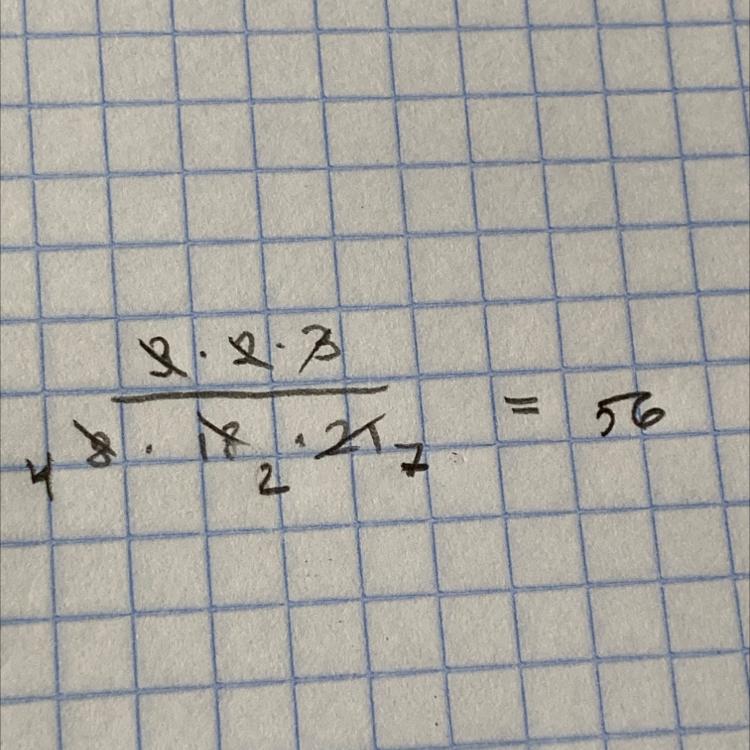 2 · 9 · 3
4 8 · 18 2 · 21 7 = 56